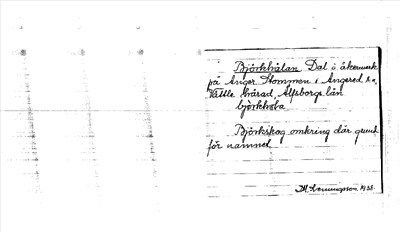 Björkhålan Dal o. åkermark
på Anger Stommen i Angered sn,
Vättle härad, Älfsborgs län
björkhola
Björkskog omkring där grund
för namnet.
1938.